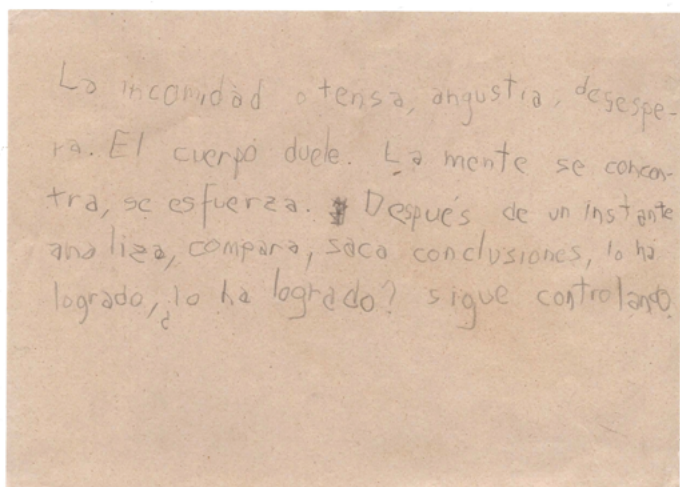 La incomidad tensa, angustia, desespe-
ra. El cuerpo duele. La mente se concen-
tra, se esfuerza. Después de un instante
analiza, compara, saca conclusiones, lo ha
logrado, ¿lo ha logrado? sigue controlando.